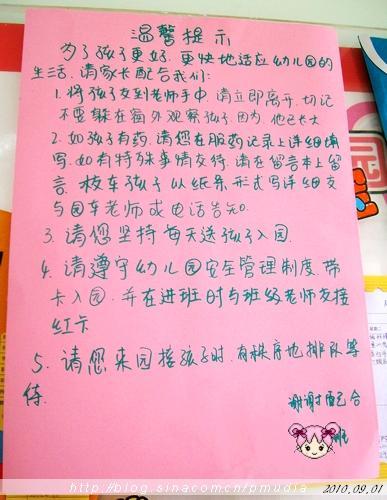 温馨提示
为了孩子更好，更快地适应幼儿园的
生活，请家长配合我们：
1.将孩子交到老师手中，请立即离开，切记
不要躲在窗外观察孩子，因为，他已长大
2.如孩子有药，请您在服药记录上详细填
写，如有特殊事情交待，请在留言本上留
言，校车孩子以纸条形式写详细交
与园车老师或电话告知.
3.请您坚持每天送孩子入园.
4.请遵守幼儿园安全管理制度，带
卡入园，并在进班时与班级老师交接
红卡
5.请您来园接孩子时，有秩序地排队等
待.
谢谢配合
班
http://blog.sina.com.cn/pmudia
2010.09.01